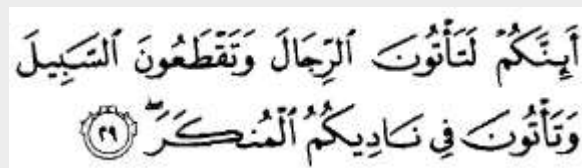 أَئِنَّكُمْ لَتَأْتُونَ الرِّجَالَ وَتَقْطَعُونَ السَّبِيلَ
وَتَأْتُونَ فِي نَادِيكُمُ الْمُنكَرَ ۖ ٢٩